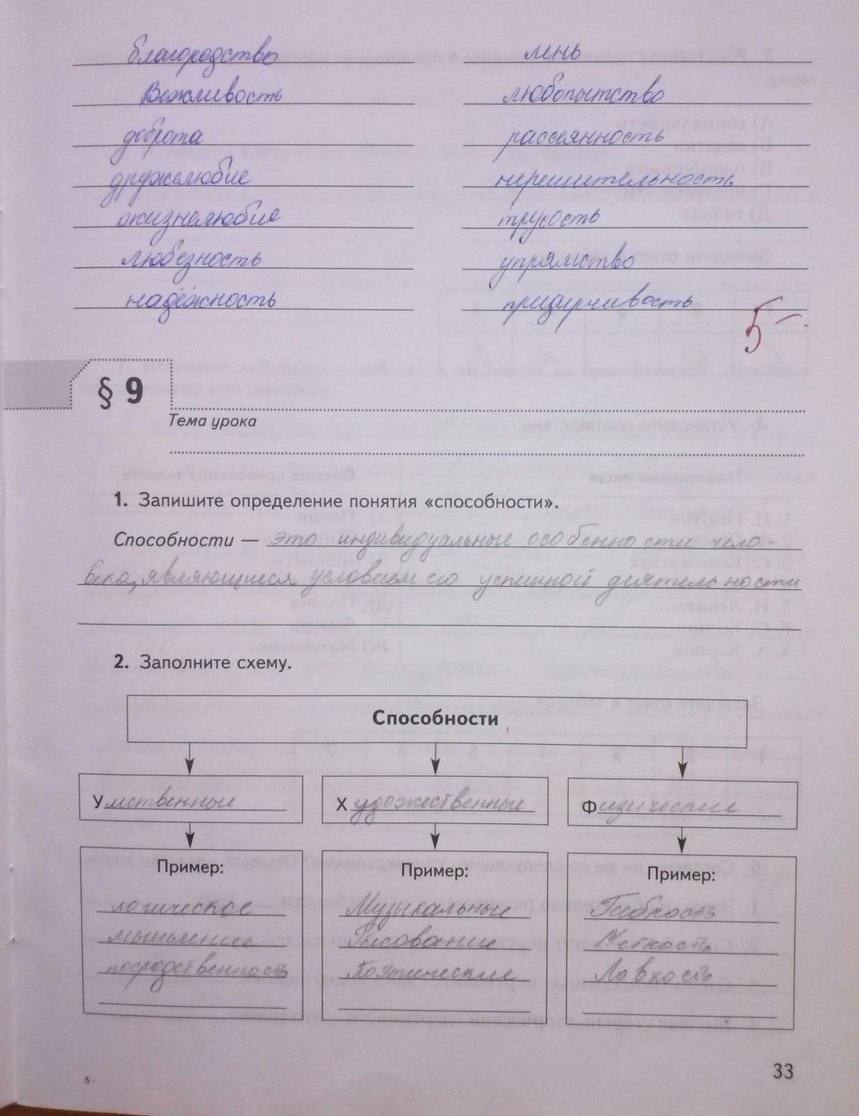 благородство
Вежливость
доброта
дружелюбие
жизнелюбие
любезность
надёжность
лень
любопытство
рассеянность
нерешительность
трусость
упрямство
придирчивость
5-
§ 9
Тема урока
1. Запишите определение понятия «способности».
Способности — это индивидуальные особенности чело-
века, являющиеся условием его успешной деятельности
2. Заполните схему.
Способности
Умственные
Художественные
Физические
Пример:
логическое
мышление
посредственность
Пример:
Музыкальные
Рисование
Поэтические
Пример:
Гибкость
Меткость
Ловкость
33